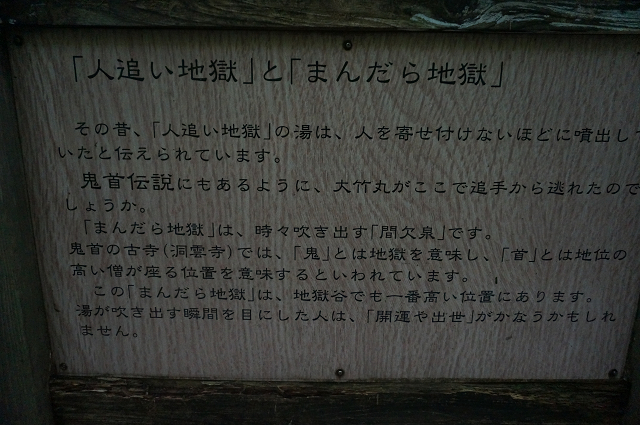 「人追い地獄」と「まんだら地獄」
その昔、「人追い地獄」の湯は、人を寄せ付けないほどに噴出して
いたと伝えられています。
鬼首伝説にもあるように、大竹丸がここで追手から逃れたので
しょうか。
「まんだら地獄」は、時々吹き出す「間欠泉」です。
鬼首の古寺(洞雲寺)では、「鬼」とは地獄を意味し、「首」とは地位の
高い僧が座る位置を意味するといわれています。
この「まんだら地獄」は、地獄谷でも一番高い位置にあります。
湯が吹き出す瞬間を目にした人は、「開運や出世」がかなうかもしれ
ません。